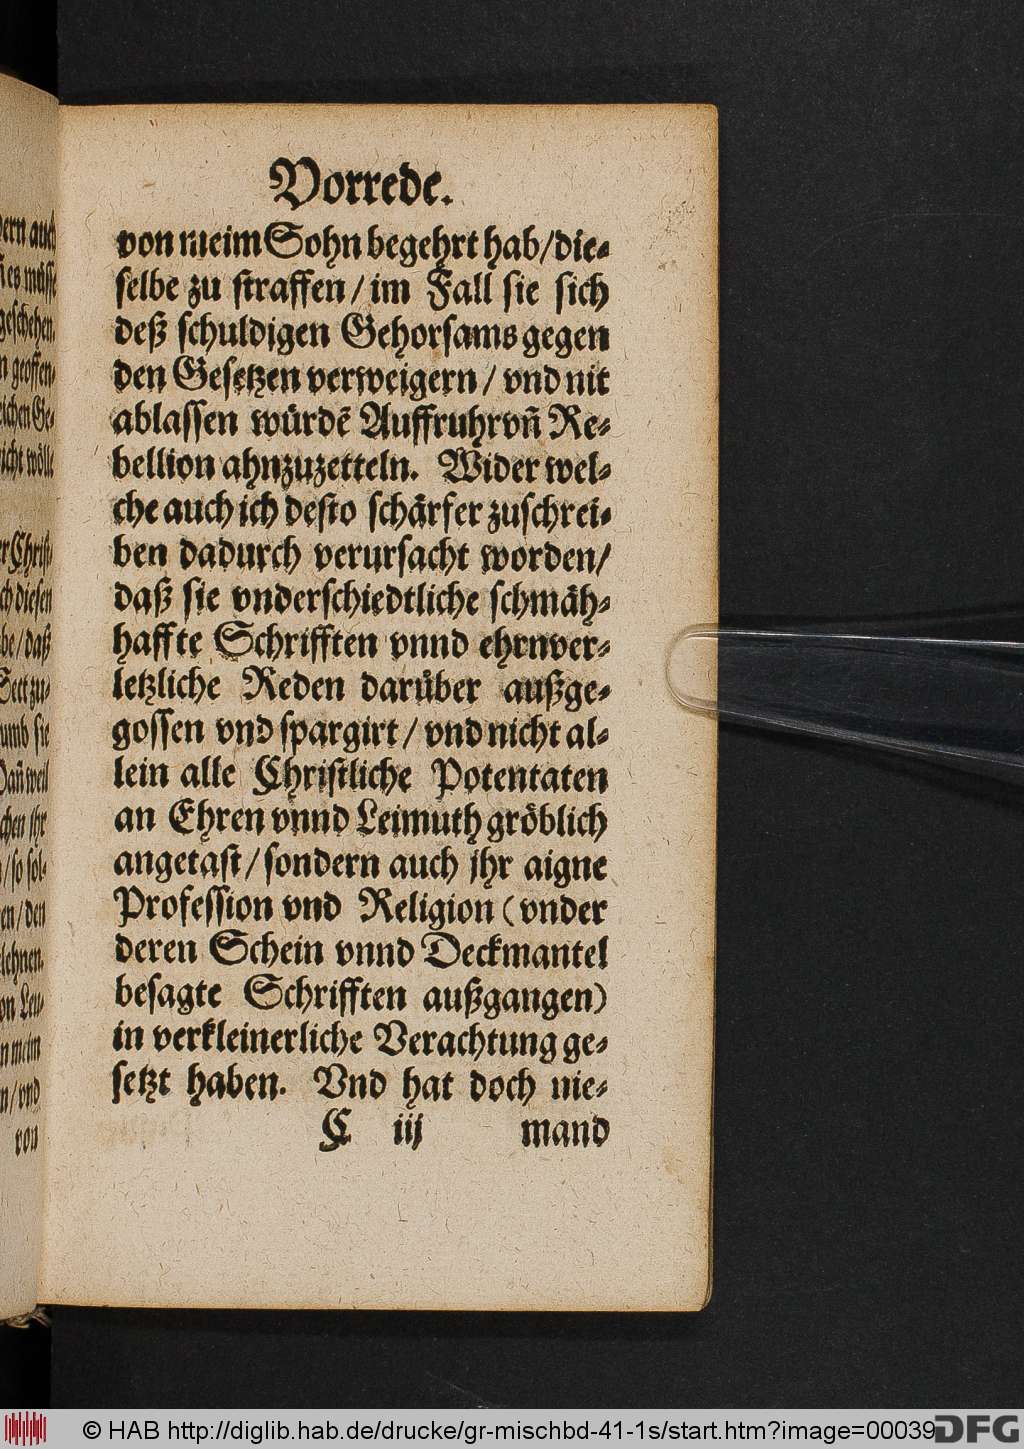 Vorrede.
von meim Sohn begehrt hab/die-
selbe zu straffen/im Fall sie sich
deß schuldigen Gehorsams gegen
den Gesetzen verweigern/vnd nit
ablassen würdē Auffruhr vñ Re-
bellion ahnzuzetteln. Wider wel-
che auch ich desto schärfer zuschrei-
ben dadurch verursacht worden/
daß sie vnderschiedtliche schmäh-
haffte Schrifften vnnd ehrnver-
letzliche Reden darüber außge-
gossen vnd spargirt/vnd nicht al-
lein alle Christliche Potentaten
an Ehren vnnd Leimuth gröblich
angetast/sondern auch jhr aigne
Profession vnd Religion (vnder
deren Schein vnnd Deckmantel
besagte Schrifften außgangen)
in verkleinerliche Verachtung ge-
setzt haben. Vnd hat doch nie-
C iij mand
dern auch
geschehen.
n geoffen-
eichen Ge-
icht wölle
er Christ-
ch diesen
be/daß
Sect zu-
umb sie
Dañ weil
chen jhr
/so sol-
en/den
lehnen.
on Leu-
n meim
n/vnd
von
© HAB http://diglib.hab.de/drucke/gr-mischbd-41-1s/start.htm?image=00039
DFG